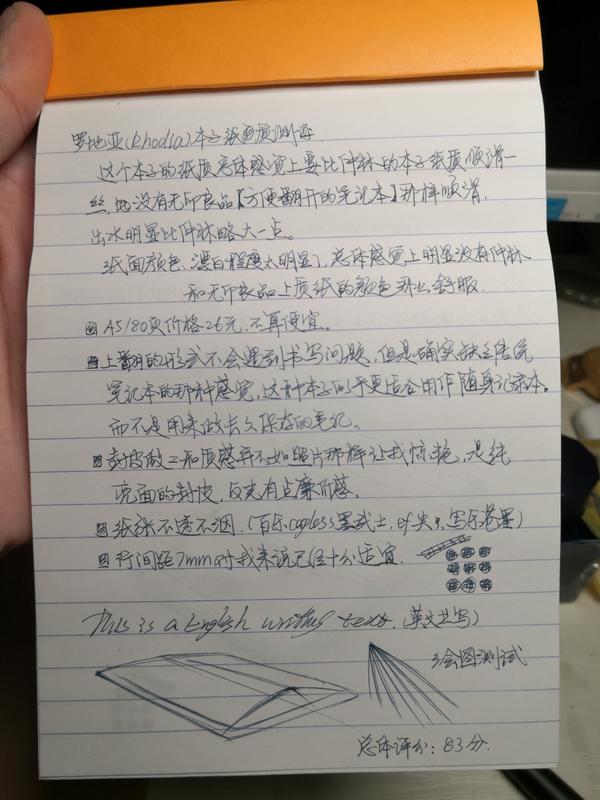 罗地亚(Rhodia)本子纸面质测评
这个本子的纸质总体感觉上要比仲林的本子纸质顺滑一
丝,但没有无印良品【方便翻开的笔记本】那样顺滑,
出水明显比仲林略大一点。
纸面颜色:漂白程度太明显,总体感觉上明显没有仲林
和无印良品上质纸的颜色那么舒服。
A5/80页价格26元,不算便宜。
上翻的形式不会遇到书写问题,但是确实缺乏传统
笔记本的那种感觉,这种本子似乎更适合用作随身记录本。
而不是用来做长久保存的笔记。
封皮做工和质感并不如照片那样让我惊艳,是纯
亮面的封皮,反光有点廉价感。
纸张不透不洇。(百乐capless黑武士,ef尖,写乐苍墨)
行间距7mm对我来说已经十分适宜。
This is a English writing text.(英文书写)
绘图测试
总体评分:83分.